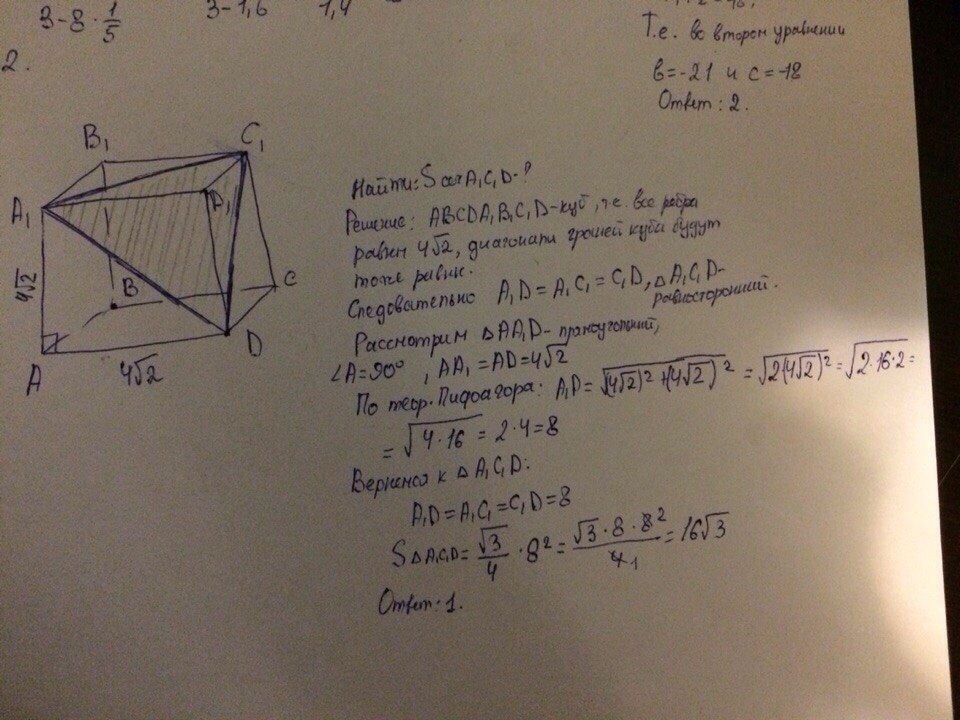 3-8·1/5
3-1,6
1,4
Т.е. во втором уравнении
в=-21 и с=-18
Ответ: 2.
2.
B₁
C₁
A₁
D₁
4√2
B
C
A
4√2
D
Найти: S сеч A₁C₁D-?
Решение: ABCDA₁B₁C₁D-куб, т.е. все ребра
равны 4√2, диагонали граней куба будут
тоже равны.
Следовательно A₁D=A₁C₁=C₁D, △A₁C₁D-
равносторонний.
Рассмотрим △AA₁D-прямоугольный,
∠A=90°, AA₁=AD=4√2
По теор. Пифагора: A₁D=√(4√2)²+(4√2)² = √2(4√2)² = √2·16·2 =
= √4·16 = 2·4=8
Вернемся к △A₁C₁D:
A₁D=A₁C₁=C₁D=8
S△A₁C₁D= √3/4 ·8² = √3·8·8²/41 = 16√3
Ответ: 1.